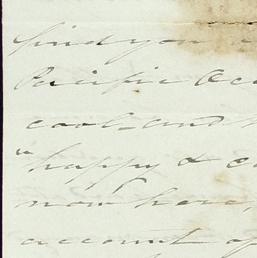 find you
Pacific Oce
cool - and
"happy & c
now here,
account of